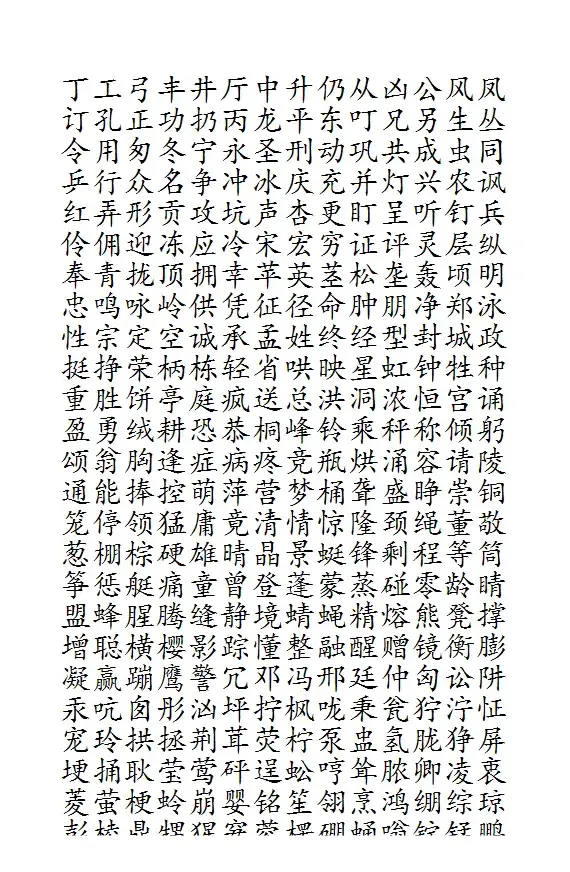 丁工弓丰井厅中升仍从凶公风凤
订孔正功扔丙龙平东叮兄另生丛
令用匆冬宁永圣刑动巩共成虫同
乒行众名争冲冰庆充并灯兴农讽
红弄形贡攻坑声杏更盯呈听钉兵
伶佣迎冻应冷宋宏穷证评灵层纵
奉青拢顶拥幸苹英茎松垄轰顷明
忠鸣咏岭供凭征径命肿朋净郑泳
性宗定空诚承孟姓终经型封城政
挺挣荣柄栋轻省哄映星虹钟牲种
重胜饼亭庭疯送总洪洞浓恒宫诵
盈勇绒耕恐恭桐峰铃乘秤称倾躬
颂翁胸逢症病疼竞瓶烘涌容请陵
通能捧控萌萍营梦桶聋盛睁崇铜
笼停领猛庸竟清情惊隆颈绳董敬
葱棚棕硬雄晴晶景蜓锋剩程等筒
筝惩艇痛童曾登蓬蒙蒸碰零龄睛
盟蜂腥腾缝静境蜻蝇精熔熊凳撑
增聪横樱影踪懂整融醒赠镜衡膨
凝赢蹦鹰警冗邓冯邢廷仲匈讼阱
汞吭囱彤汹坪拧枫咙秉瓮狞泞怔
宠玲拱拯荆茸荧柠泵盅氢胧狰屏
埂捅耿莹莺砰逞蚣哼耸脓卿凌衷
菱萤梗蛉崩婴铭笙翎烹鸿绷综琼
彭棱鼎甥猩窝蓉楞硼蛹嗡锭铥鹏